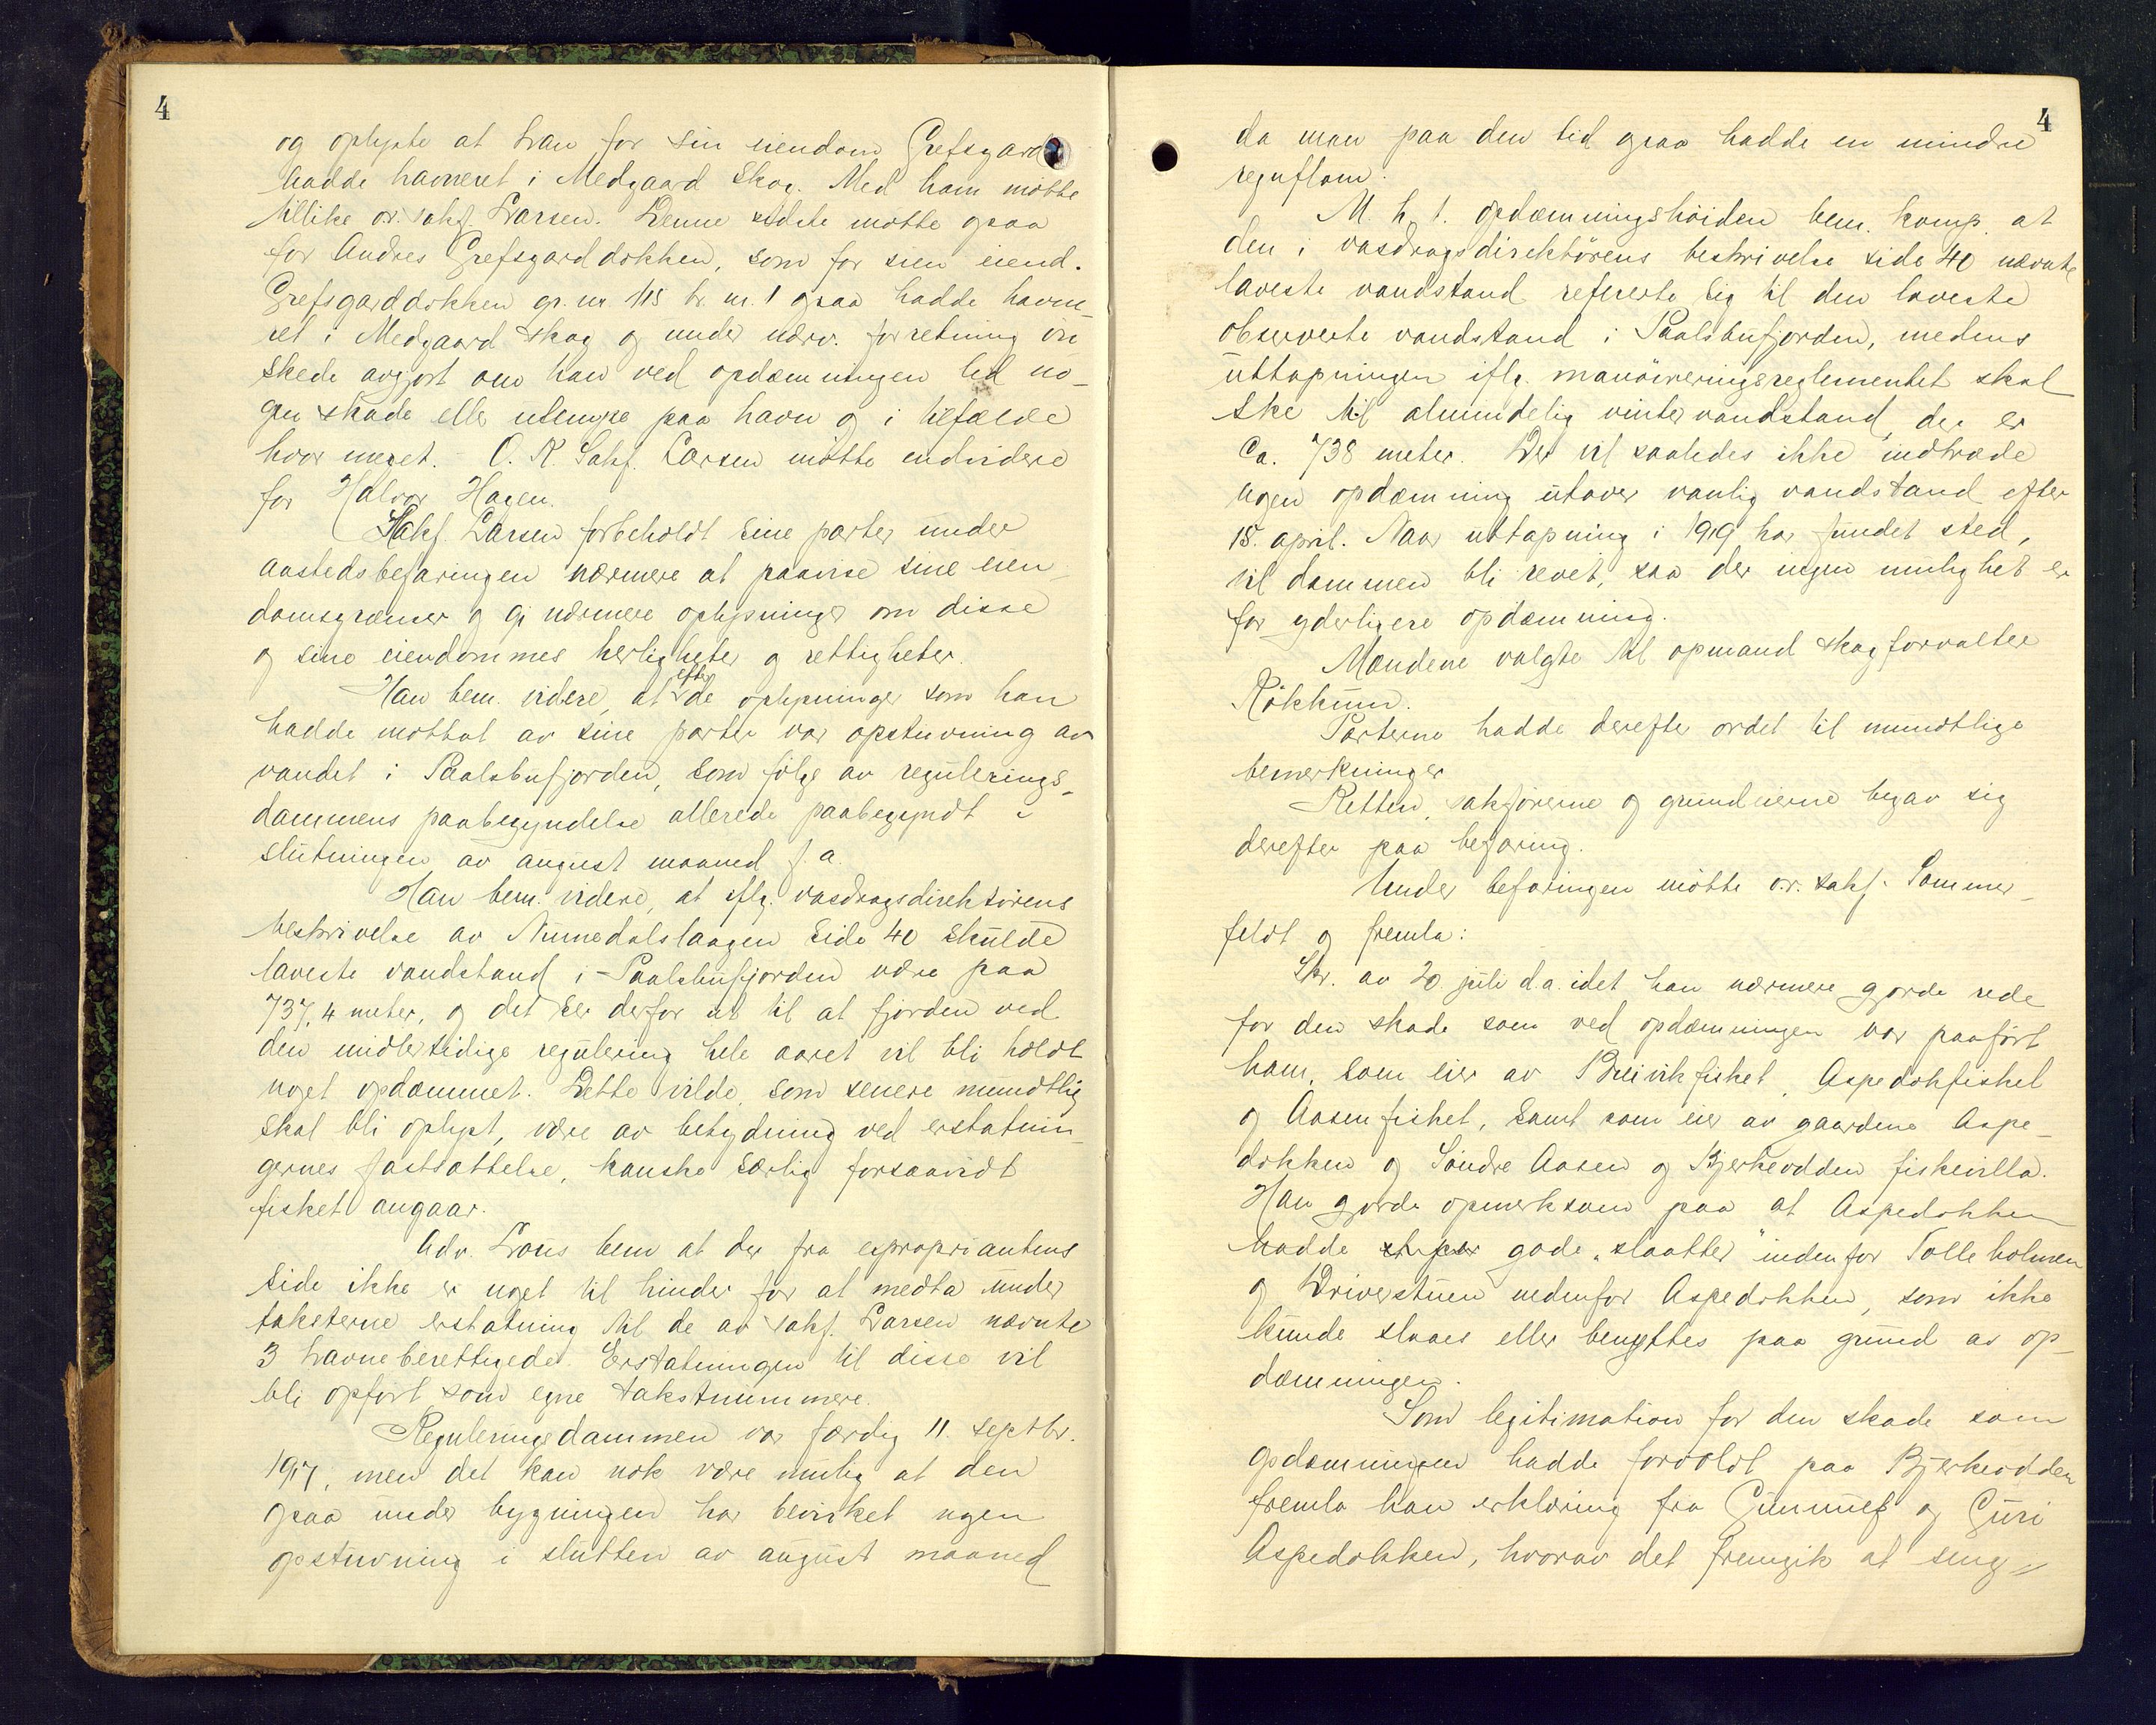 4
og oplyste at han for sin eiendom Grefsgard
hadde havneret i Medgaard Skog. Med ham møtte
tillike o.r. sakf. Larsen. Denne sidste møtte ogsaa
for Andres Grefsgarddokken, som for sien eiend.
Grefsgarddokken gr. nr 118 br. nr. 1 ogsaa hadde havne-
ret i Medgaard skog og under nærv. forretning øn
skede avgjort om han ved opdæmningen led no-
gen skade eller ulempe paa havn og i tilfælde
hvor meget. - O. R. Sakf. Larsen møtte endvidere
for Halvor Hagen.
Sakf. Larsen forbeholdt sine parter under
aastedsbefaringen nærmere at paavise sine eien-
domsgrænser og gi nærmere oplysninger om disse
og sine eiendommes herligheter og rettigheter.
Han bem. videre, at efter de oplysninger som han
hadde mottat av sine parter var opstuvning av
vandet i Paalsbufjorden, som følge av regulerings-
dammens paabegyndelse allerede paabegyndt i
slutningen av august maaned f. a.
Han bem. videre, at iflg. vasdragsdirektørens
beskrivelse av Numedalslaagen side 40 skulde
laveste vandstand i Paalsbufjorden være paa
737,4 meter, og det ser derfor ut til at fjorden ved
den midlertidige regulering hele aaret vil bli holdt
noget opdæmmet. Dette vilde, som senere mundtlig
skal bli oplyst, være av betydning ved erstatnin-
gernes fastsættelse, kanske særlig forsaavidt
fisket angaar.
Adv. Lous bem at der fra expropriantens
side ikke er noget til hinder for at medta under
taksterne erstatning til de av sakf. Larsen nævnte
3 havneberettigede. Erstatningen til disse vil
bli opført som egne takstnummere.
Reguleringsdammen var færdig 11. septbr.
1917, men det kan nok være mulig at den
ogsaa under bygningen har bevirket nogen
opstuvning i slutten av august maaned
4
da man paa den tid ogsaa hadde en mindre
regnflom.
M. h. t. opdæmningshøiden bem. komp. at
den i vasdragsdirektørens beskrivelse side 40 nævnte
laveste vandstand refererte sig til den laveste
observerte vandstand i Paalsbufjorden, medens
uttapningen iflg. manøvreringsreglementet skal
ske til almindelig vintervandstand, der er
ca. 738 meter. Der vil saaledes ikke indtræde
nogen opdæmning utover vanlig vandstand efter
15. april. Naar uttapning i 1919 har fundet sted,
vil dammen bli revet, saa der ingen mulighet er
for yderligere opdæmning.
Mændene valgte til opmand skogforvalter
Kökkum.
Parterne hadde derefter ordet til mundtlige
bemerkninger
Retten, sakførerne og grundeierne begav sig
derefter paa befaring.
Under befaringen møtte o.r. sakf. Sommer-
feldt og fremla:
Skr. av 20 juli d.a. idet han nærmere gjorde rede
for den skade som ved opdæmningen var paaført
ham, som eier av Breivikfisket, Aspedokfisket
og Aasenfisket, samt som eier av gaardene Aspe-
dokken og Søndre Aasen og Bjerkeodden fiskevilla.
Han gjorde opmerksom paa at Aspedokken
hadde gode "slaatter" indenfor Tolleholmen
og Driverstuen nedenfor Aspedokken, som ikke
kunde slaaes eller benyttes paa grund av op-
dæmningen.
Som legitimation for den skade som
opdæmningen hadde forvoldt paa Bjerkeodden
fremla han erklæring fra Gunnulf og Guri
Aspedokken, hvorav det fremgik at seng-